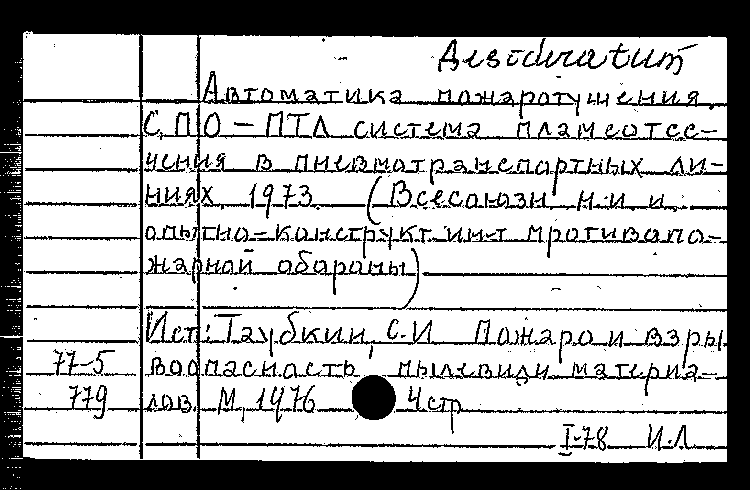 Desideratum
Автоматика пожаротушения.
С,ПО-ПТЛ система пламеотсе-
чения в пневмотранспортных ли-
ниях. 1973. (Всесоюзн. н.-и. и
опытно-конструкт. ин-т противопо-
жарной обороны)
Ист.: Таубкин, С.И Пожаро и взры
77-5 воопасность пылевидн материа-
779 лов. М., 1976 4 стр
I-78 И.Л